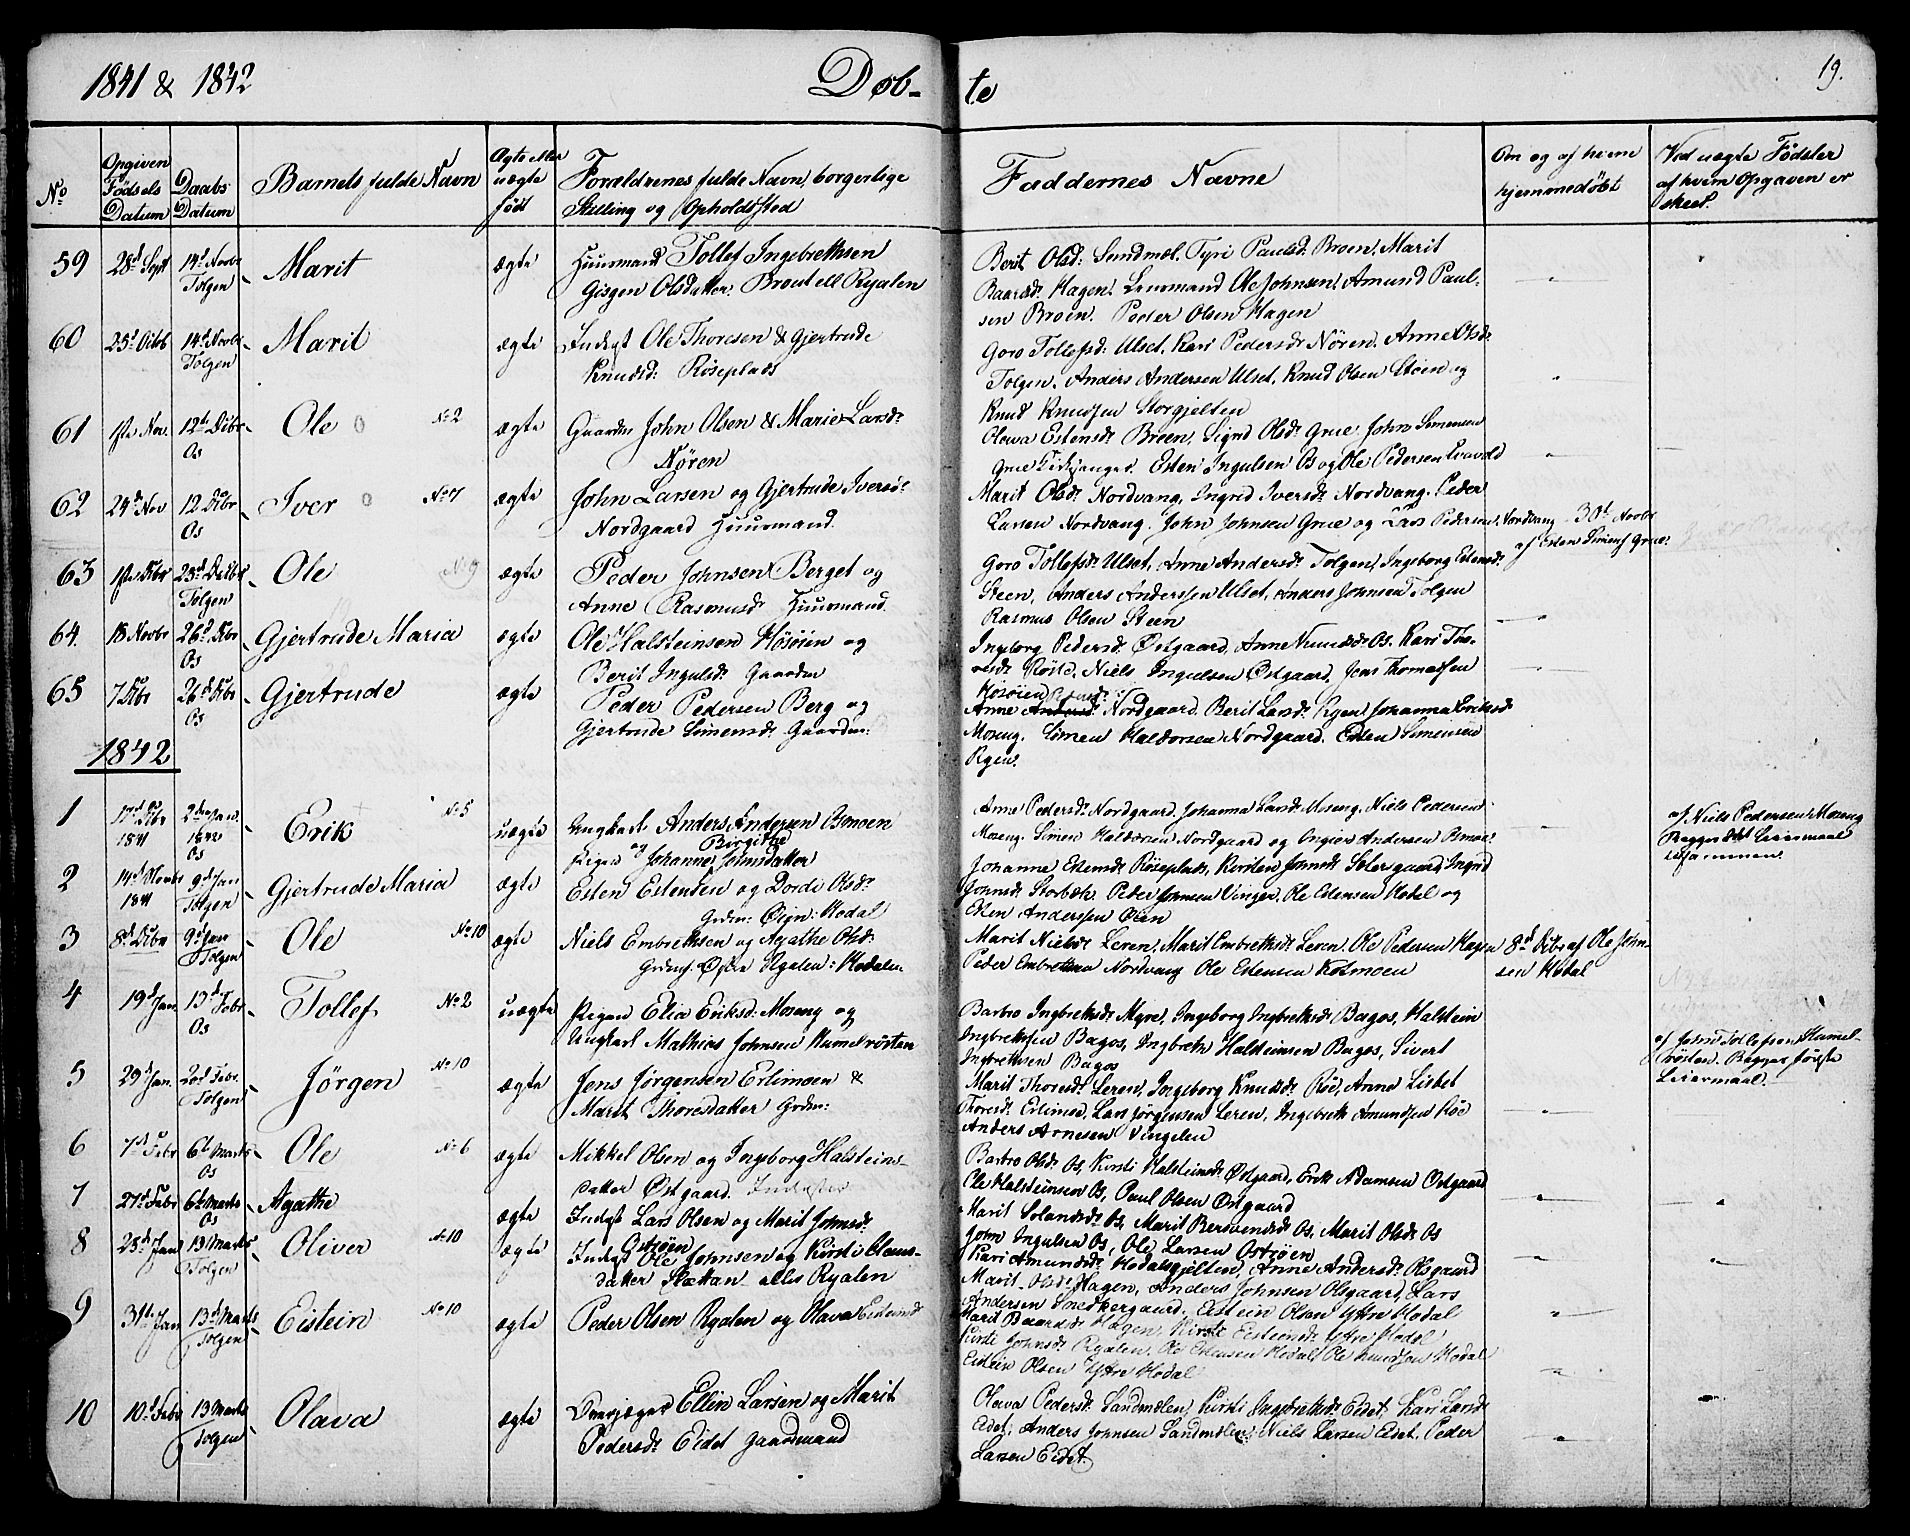 1841 & 1842
Døb-
te
19.
No
Opgiven Fødsels Datum
Daabs Datum
Barnets fulde Navn
Ægte eller uægte født
Forældrenes fulde Navn, borgerlige Stilling og Opholdssted
Faddernes Navne
Om og af hvem hjemmedøbt
Ved uægte Fødsler af hvem Opgaven er skeet.
59 28d Sept 14d Novbr Tolgen Marit ægte
Huusmand Tollef Ingebrethsen
Gisgen Olsdatter. Broutell Ryalen
Berit Olsd: Sundmæl. Tyri Paulsd: Broen, Marit
Baarsd: Hagen, Leusmand Ole Johnsen, Amund Paul-
sen Broen. Peder Olsen Hagen
60 25d Octob 14d Novbr Tolgen Marit ægte
Inderst Ole Thoresen & Gjertrude
Knudsd: Røseplads
Goro Tollefsd: Ulset, Kari Pedersd: Nören, Anne Olsd:
Tolgen, Anders Andersen Ulset, Knud Olsen Støen og
Knud Knudsen Storgjelten
61 1ste Nov. 12te Dcbr Os Ole No 2 ægte
Gaardm John Olsen & Marie Larsd:
Nøren
Olava Estensd: Broen, Sigrid Olsd: Grue, John Simensen
Grue Kirksanger, Esten Ingulsen Os og Ole Pedersen
62 24d Nov 12 Dcbr Os Iver No 7 ægte
John Larsen og Gjertrude Iversd:
Nordgaard Huusmand.
Marit Olsd: Nordvang, Ingrid Iversd: Nordvang, Peder
Larsen Nordvang. John Johnsen Grue og Lars Pedersen Nordvang
30d Novbr
af Esten Simens: Grue
63 1ste Dcbr 25d Decbr Tolgen Ole No 9 ægte
Peder Johnsen Berget og
Anne Rasmusd: Huusmand
Goro Tollefsd: Ulset, Anne Andersd: Tolgen, Ingeborg Estensd:
Steen, Anders Anderssen Ulset, Anders Johnsen Tolgen
Rasmus Olsen Steen
64. 18 Novbr 26d Dcbr Os Gjertrude Maria ægte
Ole Halsteinsen Høsøien og
Berit Ingulsd: Gaardm
Ingeborg Pedersd: Østgaard, Anne Knudsd: Os. Kari Tho-
resd: Røste, Niels Ingulsen Østgaard, Jens Thomassen
Høsøien
65 7 Dcbr 26d Dcbr Os Gjertrude ægte
Peder Pedersen Berg og
Gjertrude Simensd: Gaardm:
Anne Nordgaard. Berit Larsd: Ryen, Johanna Eriksd:
Moseng. Simen Haldorsen Nordgaard. Esten Simensen
Ryen.
1842
1 17d Dcbr 1841 2den Jan. 1842 Os Erik No 5 uægte
Ungkarl Anders Andersen Bonoen
og Birgithe
Pigen Johanne Johnsdatter
Anne Pedersd: Nordgaard, Johanna Larsd: Moseng, Niels Pedersen
Moseng. Simen Haldorsen Nordgaard og Ingier Andersen
af Niels Pedersen Moseng
Begges 1ste Leiermaal
tilsammen.
2 14d Novbr 1841 9d Jan Tolgen Gjertrude Maria ægte
Esten Estensen og Dordi Olsd:
Grdm: Øien: Hodal
Johanne Estensd: Røseplads, Kirsten Jonsd: Solersgaard, Ingrid
Johnsd: Storbæk. Peder Johnsen Vingen, Ole Estensen Hodal og
Esten Anderssen Øien
3 8d Dcbr 9d Jan Tolgen Ole No 10 ægte
Niels Embrethsen og Agathe Olsd:
Grdm: Øvre Ryalen: Hodalen
Marit Nielsd: Leren, Marit Embrethsd: Leren, Ole Pedersen Hagen
Peder Embrethsen Nordvang Ole Estensen Kotmoen
8d Dcbr af Ole John-
sen Hodal
4 19d Jan 13d Febr. Os Tollef No 2 uægte
Pigen Elia Eriksd: Moseng og
Ungkarl Mathias Johnsen Hummelvolden
Barbro Ingbrethsd: Myre, Ingeborg Ingbrethsd: Bagos, Halstein
Ingbrethsen Bagos, Ingbreth Halsteinsen Bagos, Sivert
Ingbrethsen Bagos
af John Tollefsen Hummel-
Begges første
Leiermaal.
5 29d Jan. 20d Febr. Tolgen Jørgen No 10 ægte
Jens Jørgensen Erlimoen &
Marit Thoresdatter Grdm:
Marit Thoresd: Leren, Ingeborg Knudsd: Roe, Anne Lisbet
Thoresd: Erlimoe, Lars Jørgensen Leren, Ingebreth Amundsen Roe
Anders Arnesen Vingelen
6 7d Febr 6te Marts Os Ole No 6 ægte
Mikkel Olsen og Ingeborg Halsteins-
datter Østgaard. Inderster
Barbro Olsd: Os, Kirsti Halsteinsd: Østgaard, Erik Adamsen Østgaard
Ole Halsteinsen Os, Paul Olsen Østgaard
7 27d Febr 6te Marts Os Agathe ægte
Inderst Lars Olsen og Marit Johnsd:
Osvøien
Marit Os, Marit Os, Marit Olsd: Os
John Ingulsen Os, Ole Larsen Osvøien
8 25d Jan 13 Marts Tolgen Oliver No 10 ægte
Inderst Ole Johnsen og Kirsti Olaus-
datter Slættan alls Ryalen
Kari Amundsd: Hodalsgjelten, Anne Andersd: Olsgaard
Marit Olsd: Hagen, Anders Johnsen Olsgaard, Lars
Andersen Snedkergaard. Eistein Olsen Yttre Hodal
9 31te Jan 13d Marts Tolgen Eistein No 10 ægte
Peder Olsen Ryalen og Olava Eistensd:
Marit Baardsd: Hagen, Kirsti Eisteinsd: Yttre Hodal
Kirsti Johnsd: Ryalen, Ole Estensen Hodal, Ole Knudsen Hodal
Eistein Olsen Yttre Hodal
10 10d Febr 13 Marts Tolgen Olava ægte
Overjæger Ellin Larsen og Marit
Pedersd: Eidet Gaardmand
Olava Pedersd: Sandmælen, Kirsti Ingebrethsd: Eidet, Kari Larsd:
Eidet, Anders Johnsen Sandmælen, Niels Larsen Eidet, Peder
Larsen Eidet.